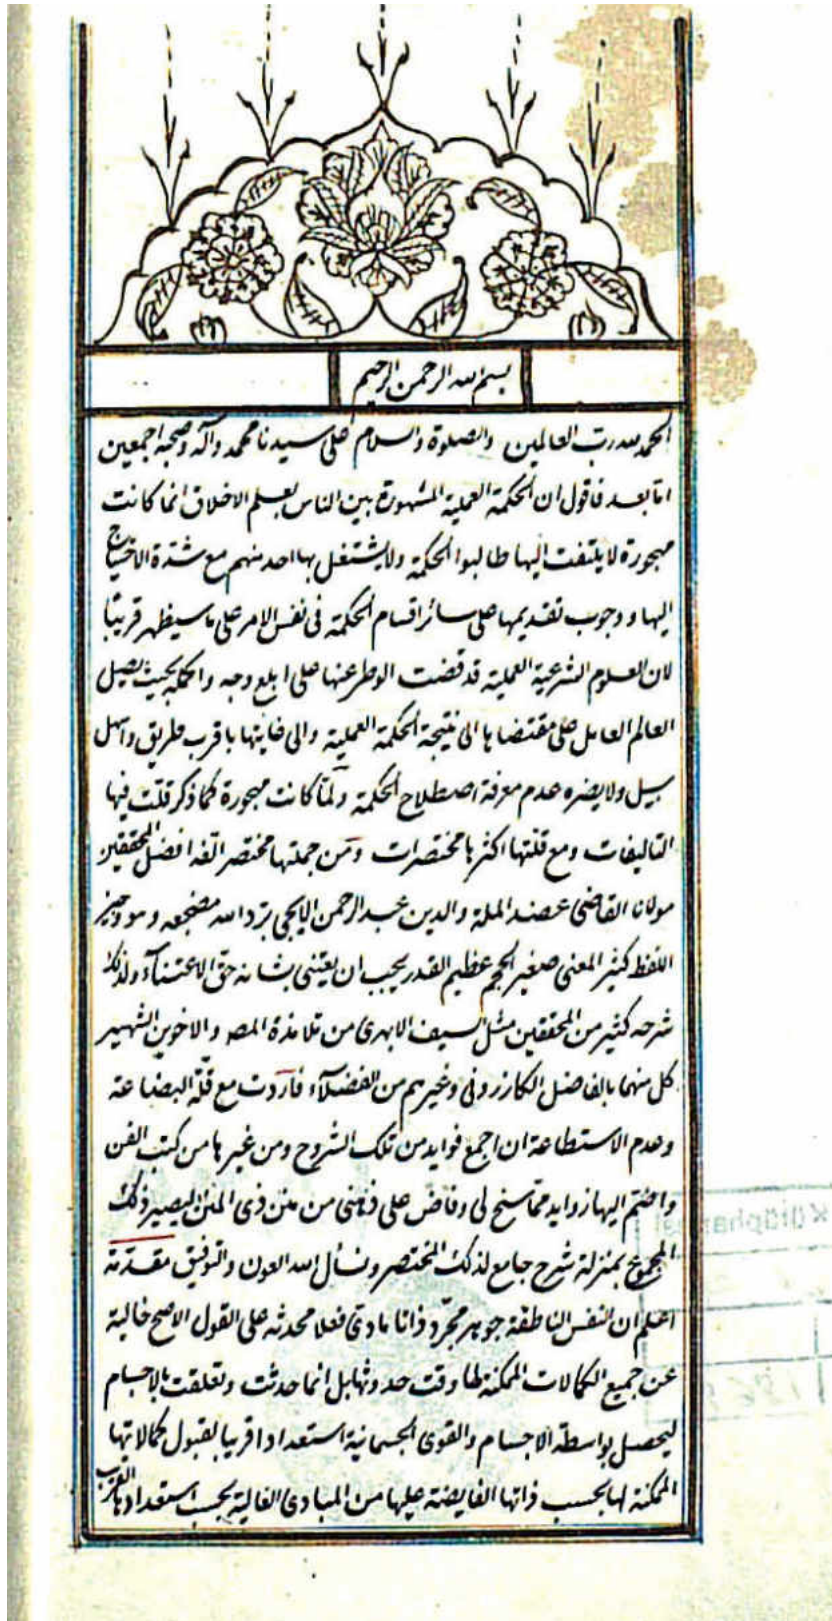 بسم الله الرحمن الرحيم
الحمد لله رب العالمين والصلوة والسلام على سيدنا محمد وآله وصحبه اجمعين
اما بعد فاقول ان الحكمة العملية المشهورة بين الناس بعلم الاخلاق انما كانت
مهجورة لا يلتفت اليها طالبوا الحكمة ولا يشتغل بها احد منهم مع شدة الاحتياج
اليها ووجوب تقديمها على سائر اقسام الحكمة فى نفس الامر على ما سيظهر قريبا
لان العلوم الشرعية العملية قد قضت الوطر عنها على ابلغ وجه واحكمه بحيث يصل
العالم العامل على مقتضاها الى نتيجة الحكمة العملية والى غايتها باقرب طريق واسهل
سبيل ولا يضره عدم معرفة اصطلاح الحكمة ولما كانت مهجورة كما ذكر قلت فيها
التاليفات ومع قلتها اكثرها مختصرات ومن جملتها مختصر الفه افضل المحققين
مولانا القاضى عضد الملة والدين عبد الرحمن الايجى برد الله مضجعه وهو وجيز
اللفظ كثير المعنى صغير الحجم عظيم القدر يجب ان يعتنى بشانه حق الاعتناء ولذلك
شرحه كثير من المحققين مثل السيف الابهرى من تلامذة المص والاخوين الشهير
كل منهما بالفاضل الكازرونى وغيرهم من الفضلآء فاردت مع قلة البضاعة
وعدم الاستطاعة ان اجمع فوايد من تلك الشروح ومن غيرها من كتب الفن
واضم اليها زوايد مما سنح لى وفاض على ذهنى من منن ذى المنن ليصير ذلك
المجموع بمنزلة شرح جامع لذلك المختصر ونسأل الله العون والتوفيق مقدمة
اعلم ان النفس الناطقة جوهر مجرد ذاتا مادى فعلا محدثة على القول الاصح خالية
عن جميع الكمالات الممكنة لها وقت حدوثها بل انما حدثت وتعلقت بالاجسام
ليحصل بواسطة الاجسام والقوى الجسمانية استعدادا قريبا لقبول كمالاتها
الممكنة لها بحسب ذاتها الفايضة عليها من المبادى العالية بحسب استعدادها القريب